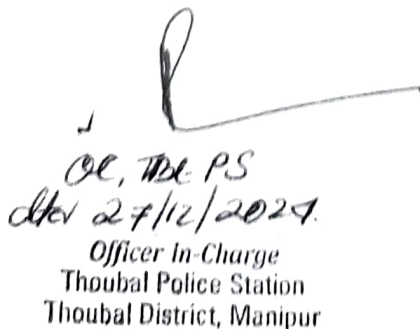 OC, TBL PS
27/12/2024.
Officer In-Charge
Thoubal Police Station
Thoubal District, Manipur